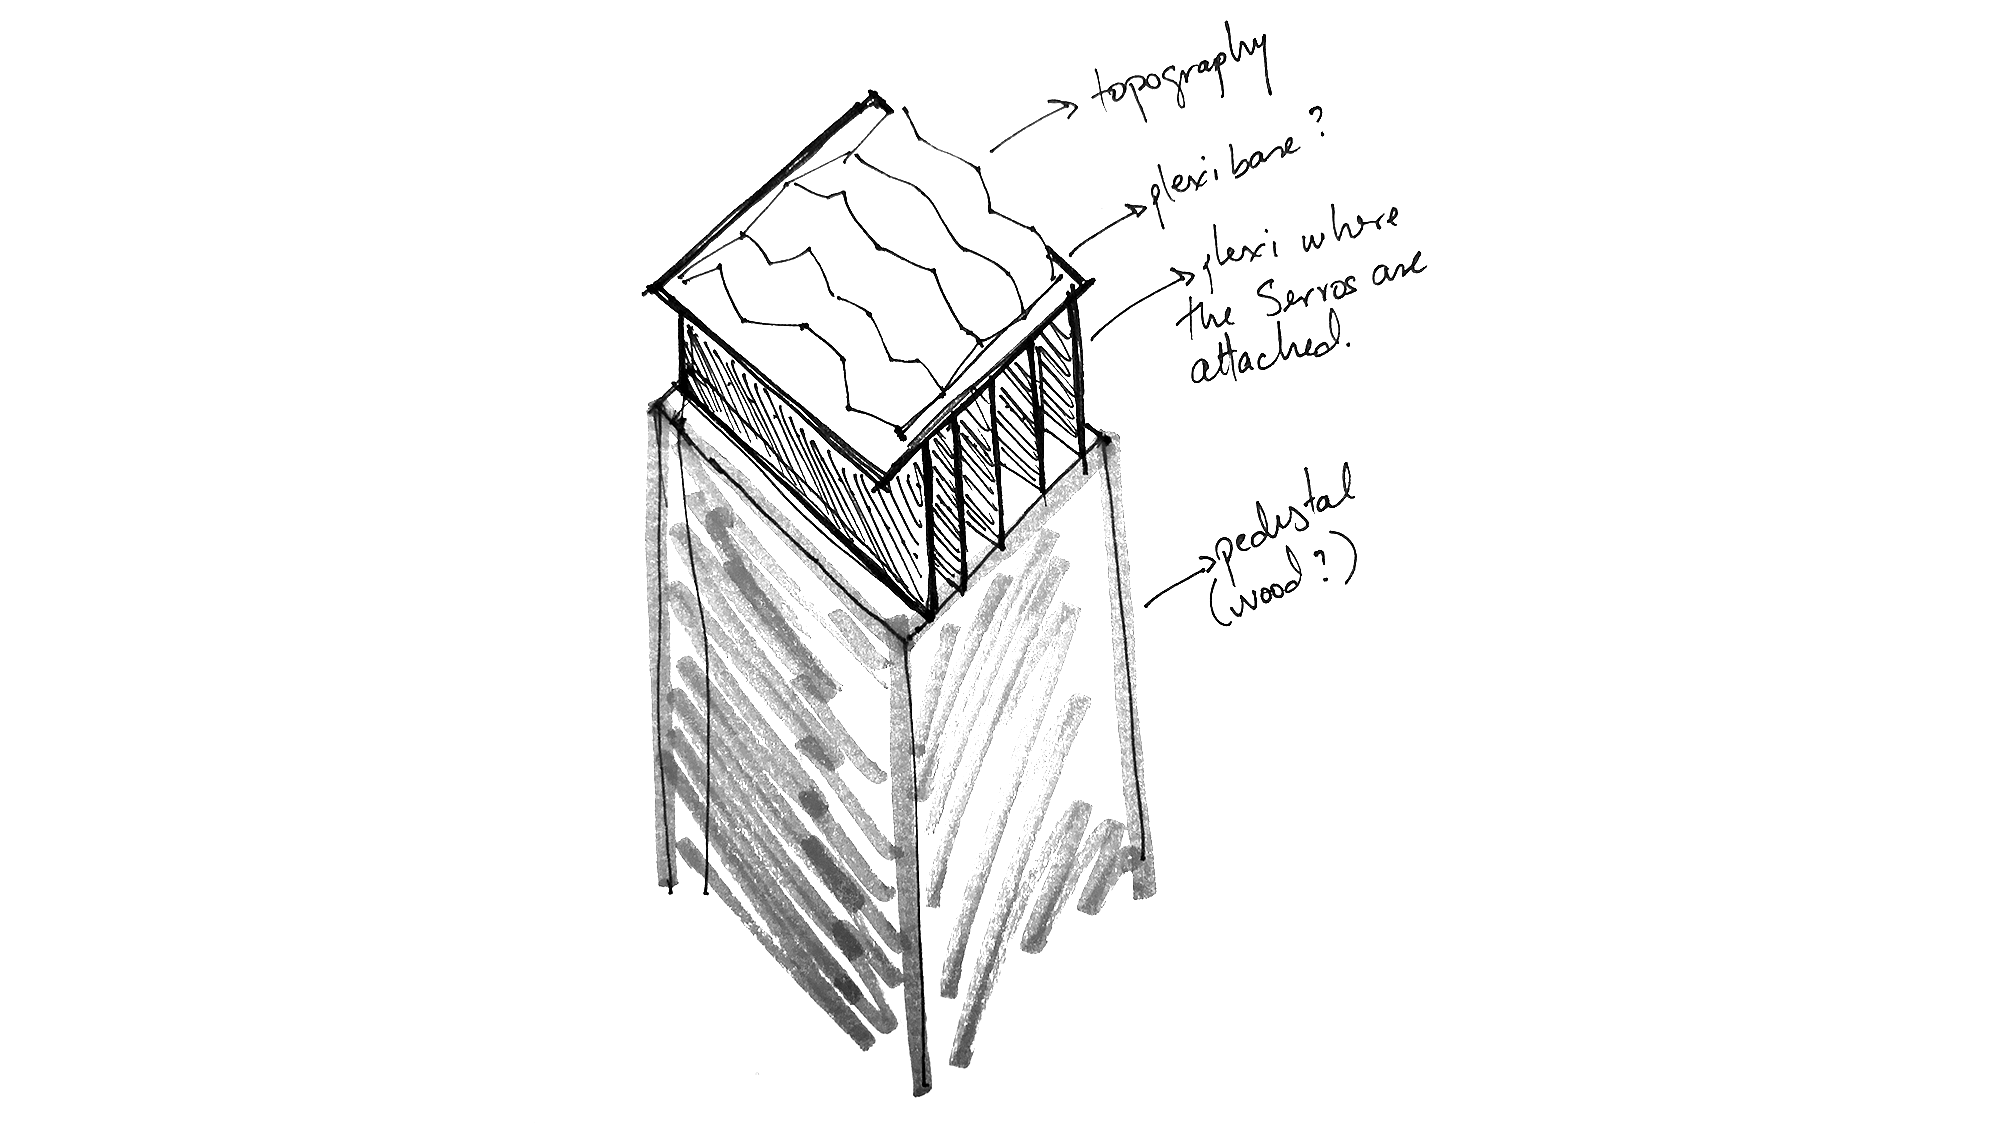 topography
plexi base?
plexi where
the Servos are
attached.
pedestal
(wood?)